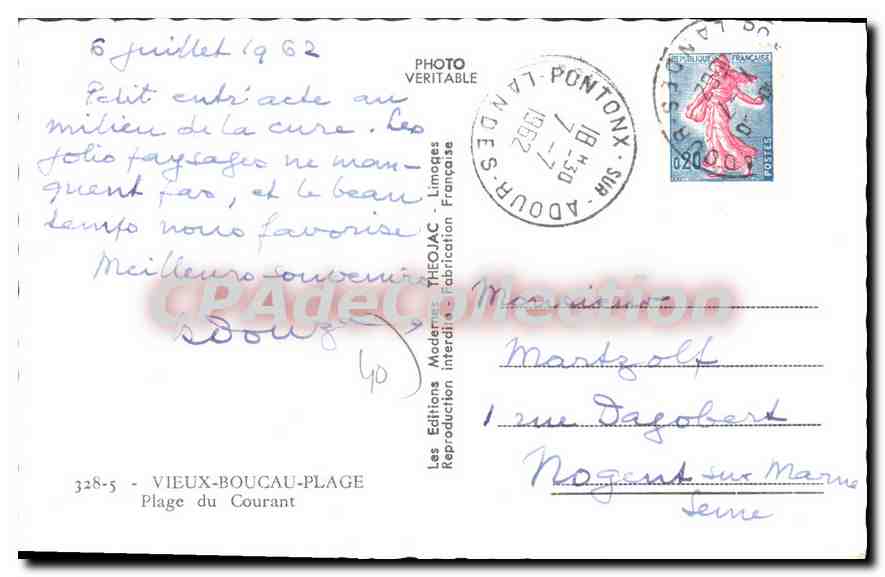 6 juillet 1962
Petit entr'acte au
milieu de la cure. Les
jolis paysages ne man-
quent pas, et le beau
temps nous favorise
Meilleurs souvenirs
40
328-5 - VIEUX-BOUCAU-PLAGE
Plage du Courant
PHOTO
VERITABLE
Les Editions Modernes THEOJAC - Limoges
Reproduction interdite - Fabrication Française
PONTONX - SUR - ADOUR - LANDES
18 H 30
7 - 7
1962
REPUBLIQUE FRANÇAISE
0,20
POSTES
Monsieur
Martzolf
1 rue Dagobert
Nogent sur Marne
Seine
CPAdeCollection